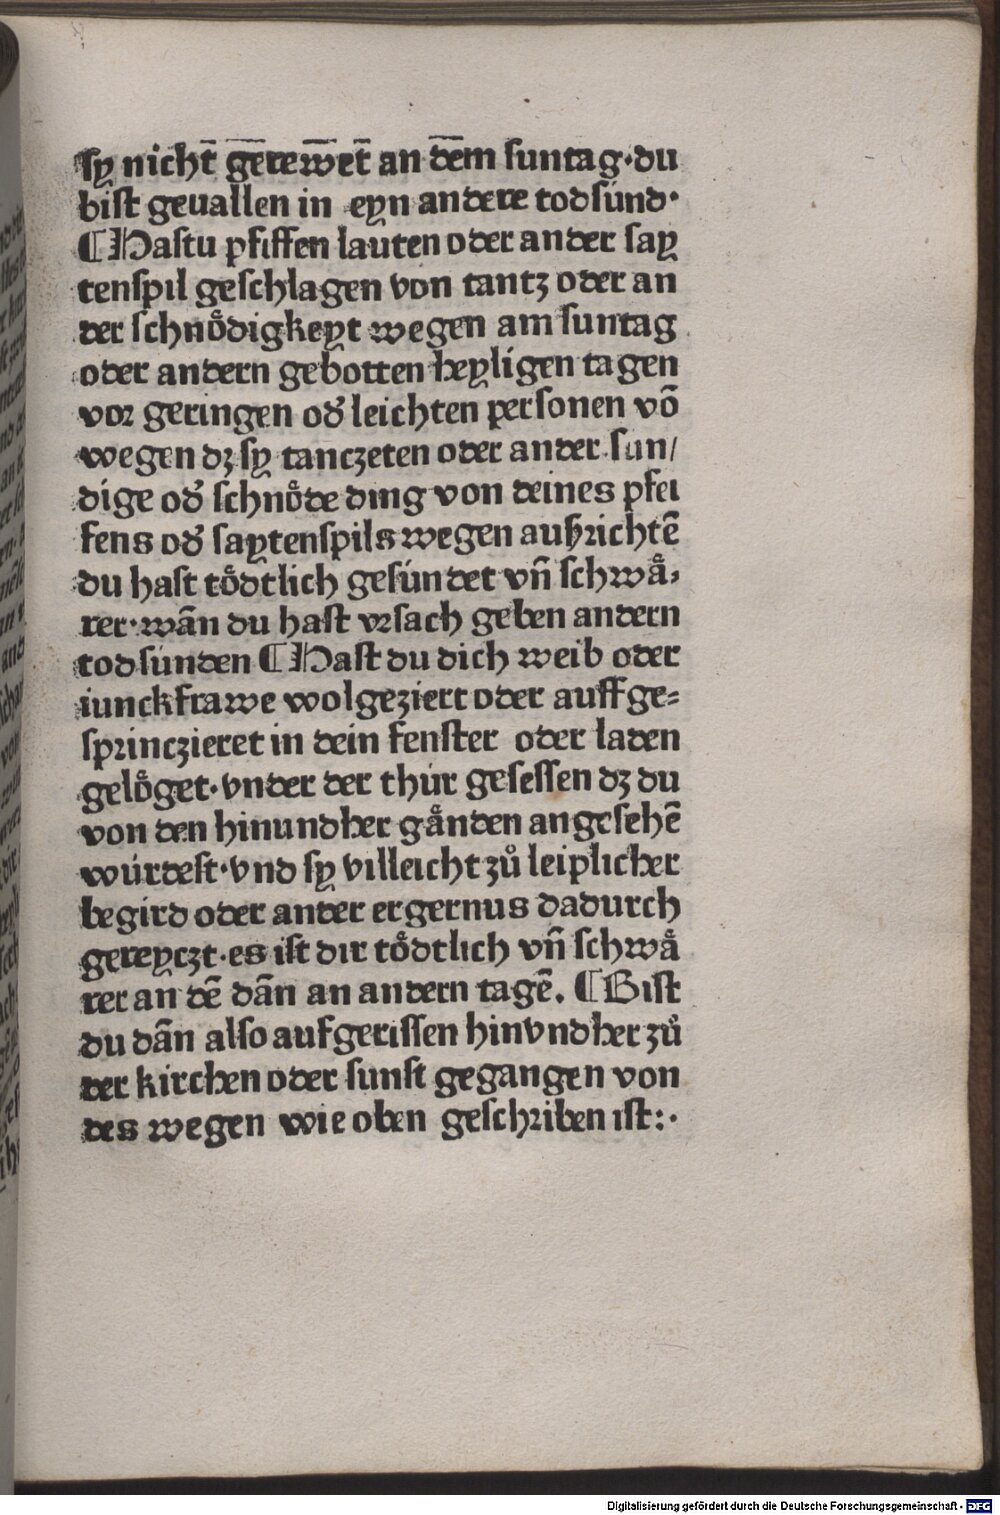 sy nicht̄ gērew̄et̄ an dēm suntag·du
bist geuallen in eyn andere todsúnd·
¶Hastu pfiffen lauten oder ander say
tenspil geschlagen von tantz oder an
der schnoͤdigkeyt wegen am suntag
oder andern gebotten heyligen tagen
vor geringen od̓ leichten personen vō
wegen dz sy tanczeten oder ander sun/
dige od̓ schnoͤde ding von deines pfei
fens od̓ saytenspils wegen außrichtē
du hast toͤdtlich gesúndet vn̄ schwaͤ,
rer·wān du hast vrsach geben andern
todsúnden ¶Hast du dich weib oder
iunckfrawe wolgeziert oder auffge=
sprinczieret in dein fenster oder laden
geloͤget·vnder der thúr gesessen dz du
von den hinundher gaͤnden angesehē
wúrdest·vnd sy villeicht zů leiplicher
begird oder ander ergernus dadurch
gereyczt·es ist dir toͤdtlich vn̄ schwaͤ
rer an dē dān an andern tagē. ¶Bist
du dān also aufgerissen hinvndher zů
der kirchen oder sunst gegangen von
des wegen wie oben geschriben ist:·
Digitalisierung gefördert durch die Deutsche Forschungsgemeinschaft - DFG